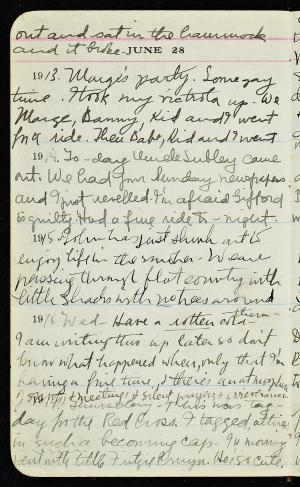 out and sat in the hammock
and it broke. JUNE 28
1913. Marge's party. Some gay
time. I took my victrola up. We
Marge, Danny, Kid and I went
for a ride. Then Babe, Kid and I went
1914. To-day Uncle Subley came
out. We had four Sunday newspapers
and I just revelled. I'm afraid Gifford
is guilty. Had a fine ride to-night.
1915 John has just slunk out to
enjoy life in the smoker. We are
passing through flat country with
little shacks with no trees around
them.
1916 Wed. Have a rotten cold.
I am writing this up later so don't
know what happened when, only that I'm
having a fine time, & there's an atmosphere
of meetings & silent prayers &
This was tag-
day for the Red Cross. I tagged, attired
in such a becoming cap. In morning
went with little Pruyn. He's so cute.